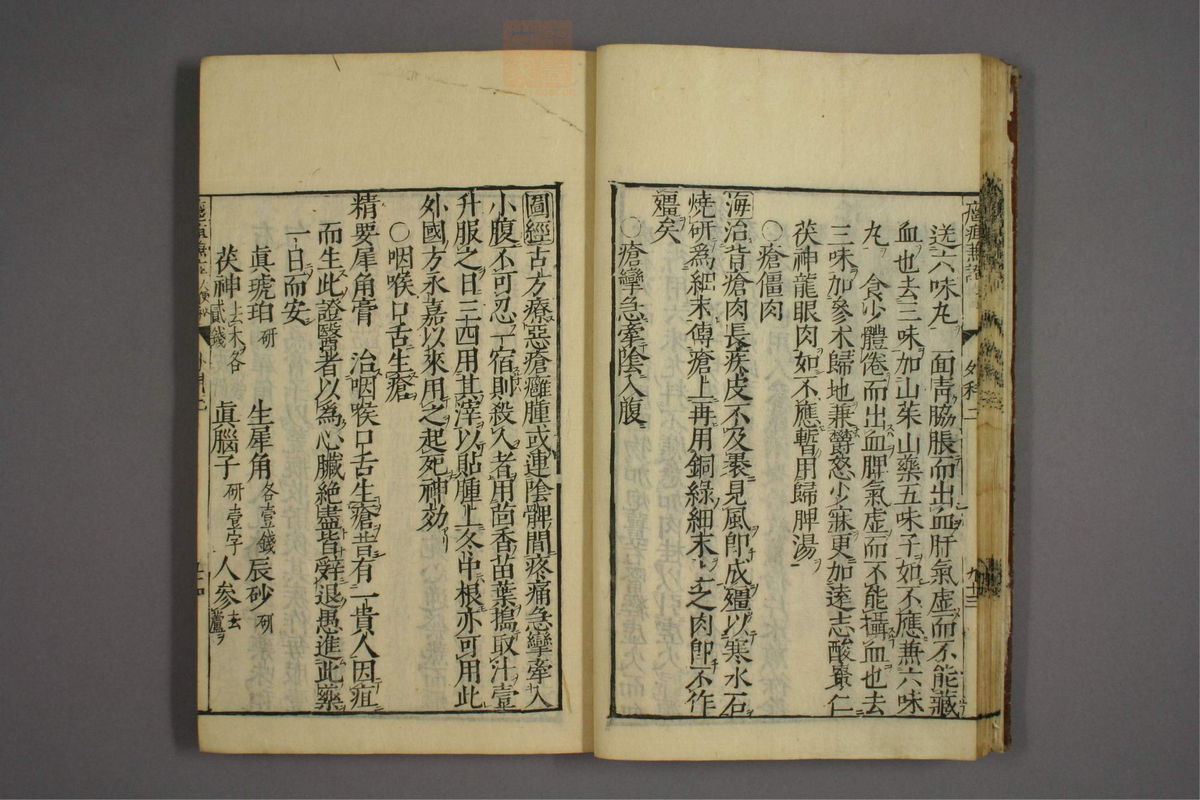 送六味丸 面青脇脹而出血肝氣虚而不能藏
血也去三味加山茱山藥五味子如不應兼六味
丸 食少體倦而出血脾氣虚而不能攝血也去
三味加參朮歸地兼欝怒少寐更加遠志酸棗仁
茯神龍眼肉如不應暫用歸脾湯
○瘡僵肉
海治背瘡肉長疾皮不及褁見風即成殭以寒水石
燒研為細末傅瘡上再用銅綠細末上之肉即不作
殭矣
○瘡攣急牽陰入腹
外科二
圖經古方療惡瘡癰腫或連陰髀間疼痛急攣牽入
小腹不可忍一宿則殺人者用茴香苗葉搗取汁壹
升服之日三四用其滓以貼腫上冬中根亦可用此
外國方永嘉以來用之起死神効
○咽喉口舌生瘡
精要犀角膏 治咽喉口舌生瘡昔有一貴人因疽
而生此證醫者以為心臟絶盡皆辭退愚進此藥
一日而安
真琥珀研 生犀角各壹錢 辰砂研
茯神去木各貳錢 真腦子研壹字 人參去蘆